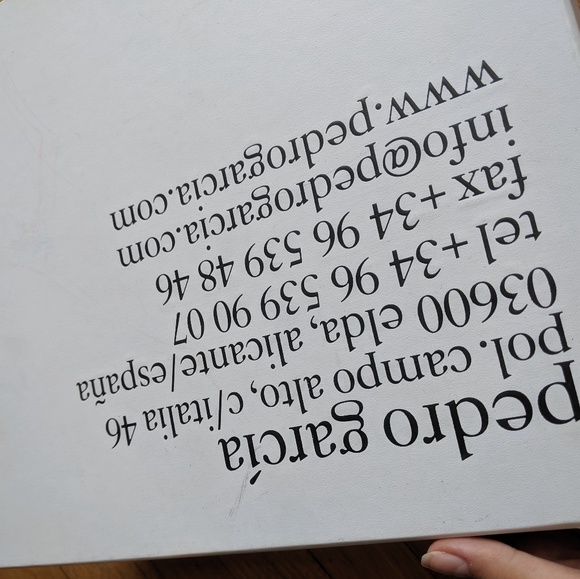 pedro garcía
pol. campo alto, c/italia 46
03600 elda, alicante/españa
tel +34 96 539 90 07
fax +34 96 539 48 46
info@pedrogarcia.com
www.pedrogarcia.com